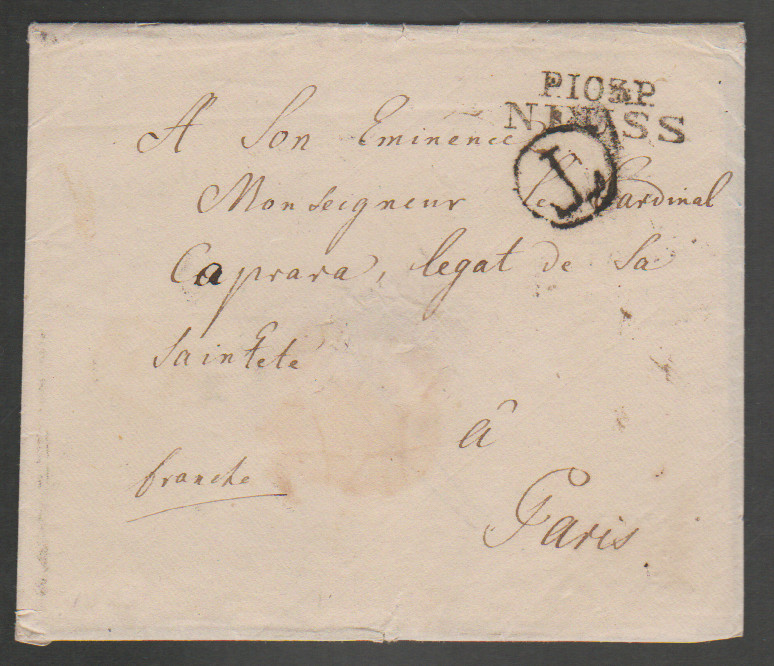 P103P
NEUSS
L
A Son Eminence
Monseigneur le Cardinal
Caprara, legat de Sa
Sainteté
à
franche
Paris